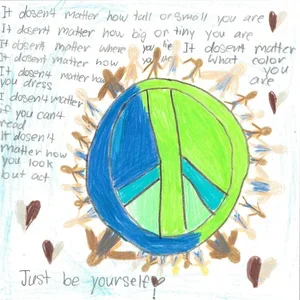 It dosen4 matter how tall or small you are
It dosent matter how big or tiny you are
It dosent matter where you lie
It dosent matter how you
It dosen4 matter how
you dress
I dosen4 matter
if you can4
read
It dosen4
matter how
you look
but act
It dosen4 matter
what color
you
are
Just be yourself!